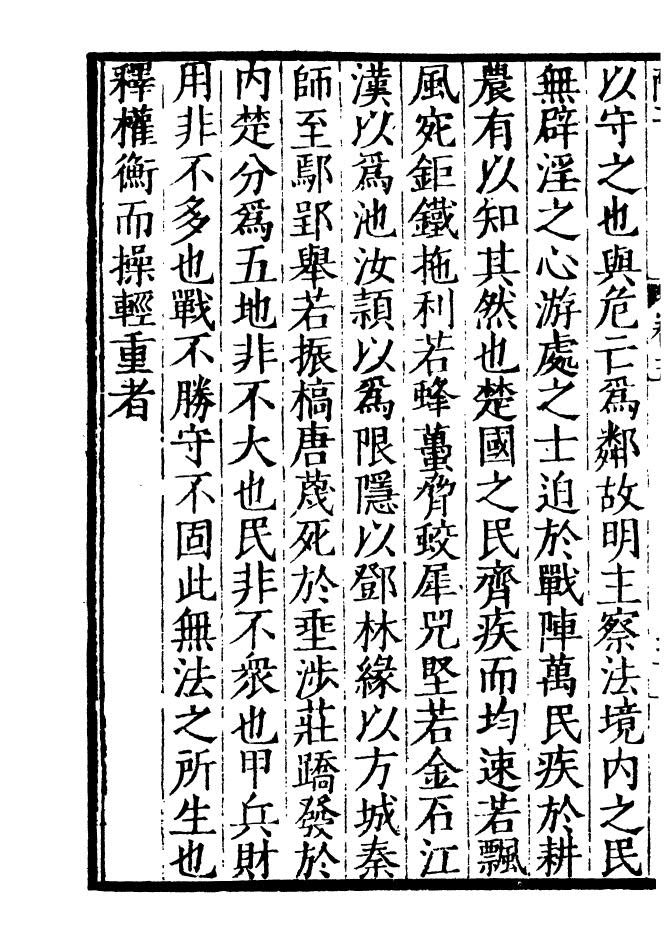 以守之也與危亡爲鄰故明主察法境內之民
無辟淫之心游處之士迫於戰陣萬民疾於耕
農有以知其然也楚國之民齊疾而均速若飄
風宛鉅鐵拖利若蜂蠆脅蛟犀兕堅若金石江
漢以爲池汝潁以爲限隱以鄧林緣以方城秦
師至鄢郢舉若振槁唐蔑死於垂涉莊蹻發於
內楚分爲五地非不大也民非不衆也甲兵財
用非不多也戰不勝守不固此無法之所生也
釋權衡而操輕重者